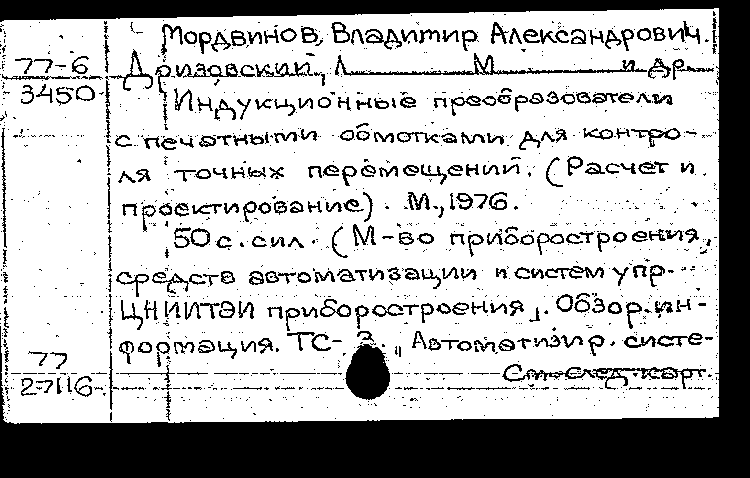 Мордвинов, Владимир Александрович.
77-6 Дризовский, Л М и др.
3450 Индукционные преобразователи
с печатными обмотками для контро-
ля точных перемещений. (Расчет и
проектирование). М., 1976.
50 с. с ил. (М-во приборостроения,
средств автоматизации и систем упр.
ЦНИИТЭИ приборостроения". Обзор. ин-
формация. ТС-3. "Автоматизир. систе-
77
27116 См. след. карт.